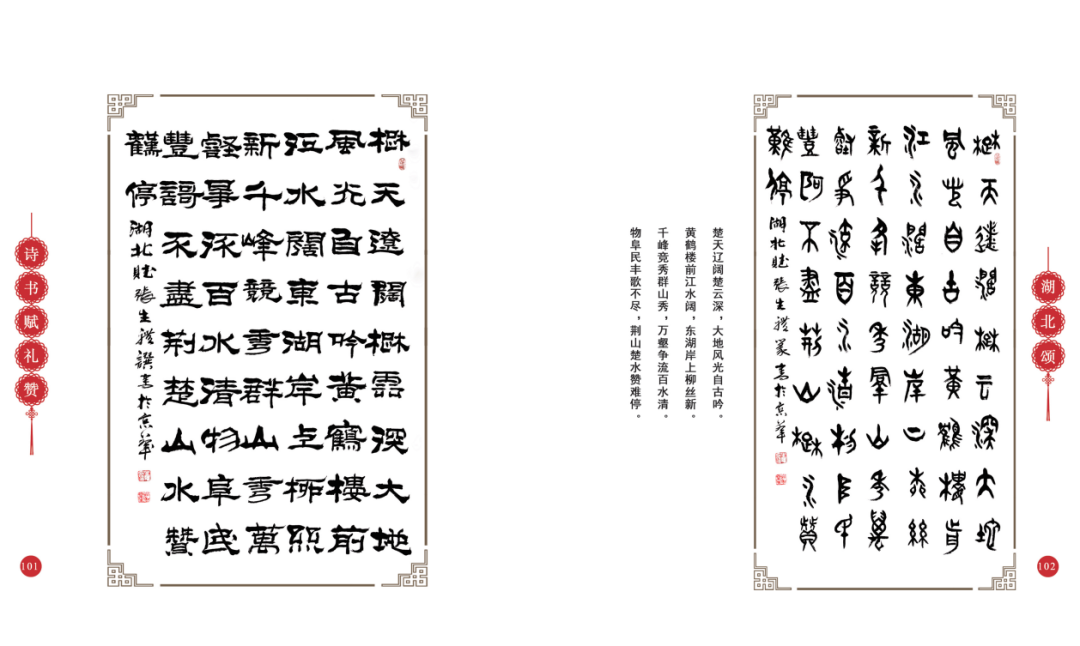 诗书赋礼赞
101
楚天遼闊楚雲深大地
風光自古吟黃鶴樓前
江水闊東湖岸上柳絲
新千峰競秀群山秀萬
壑爭流百水清物阜民
豐謌不盡荆楚山水贊
難停
湖北賦張生禮譔書於京華
楚天辽阔楚云深，大地风光自古吟。
黄鹤楼前江水阔，东湖岸上柳丝新。
千峰竞秀群山秀，万壑争流百水清。
物阜民丰歌不尽，荆山楚水赞难停。
楚天遼闊楚云深大地
風光自古吟黃鶴樓前
江水闊東湖岸上柳絲
新千峰競秀群山秀萬
壑爭流百水清物阜民
豐歌不盡荆山楚水贊
難停
湖北賦張生禮篆書於京華
湖北颂
102